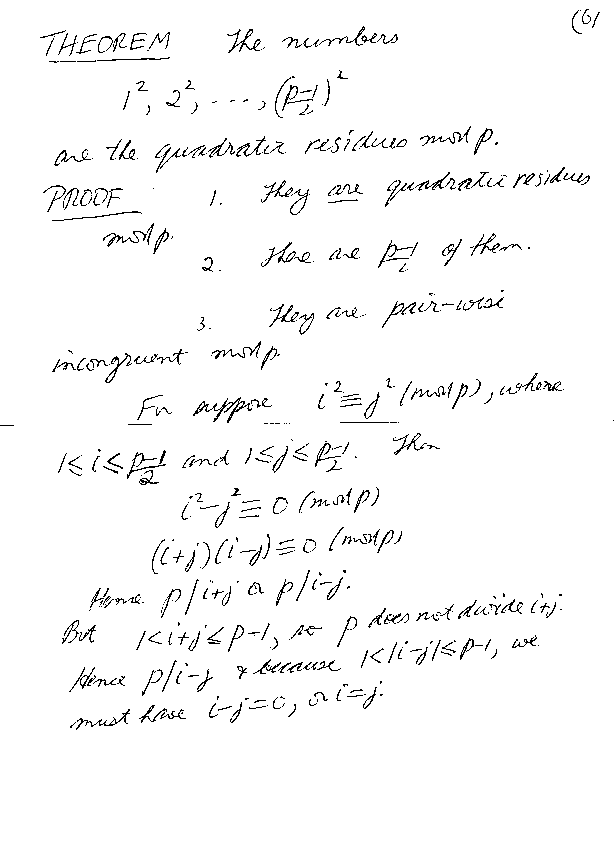 (61
THEOREM The numbers
1², 2², ..., (p-1/2)²
are the quadratic residues mod p.
PROOF 1. They are quadratic residues
mod p.
2. There are p-1/2 of them.
3. They are pair-wise
incongruent mod p
For suppose i² ≡ j² (mod p), where
1 ≤ i ≤ p-1/2 and 1 ≤ j ≤ p-1/2. Then
i² - j² ≡ 0 (mod p)
(i+j)(i-j) ≡ 0 (mod p)
Hence p/i+j or p/i-j.
But 1 < i+j ≤ p-1, so p does not divide i+j.
Hence p/i-j & because 1 < |i-j| ≤ p-1, we
must have i-j = 0, or i = j.